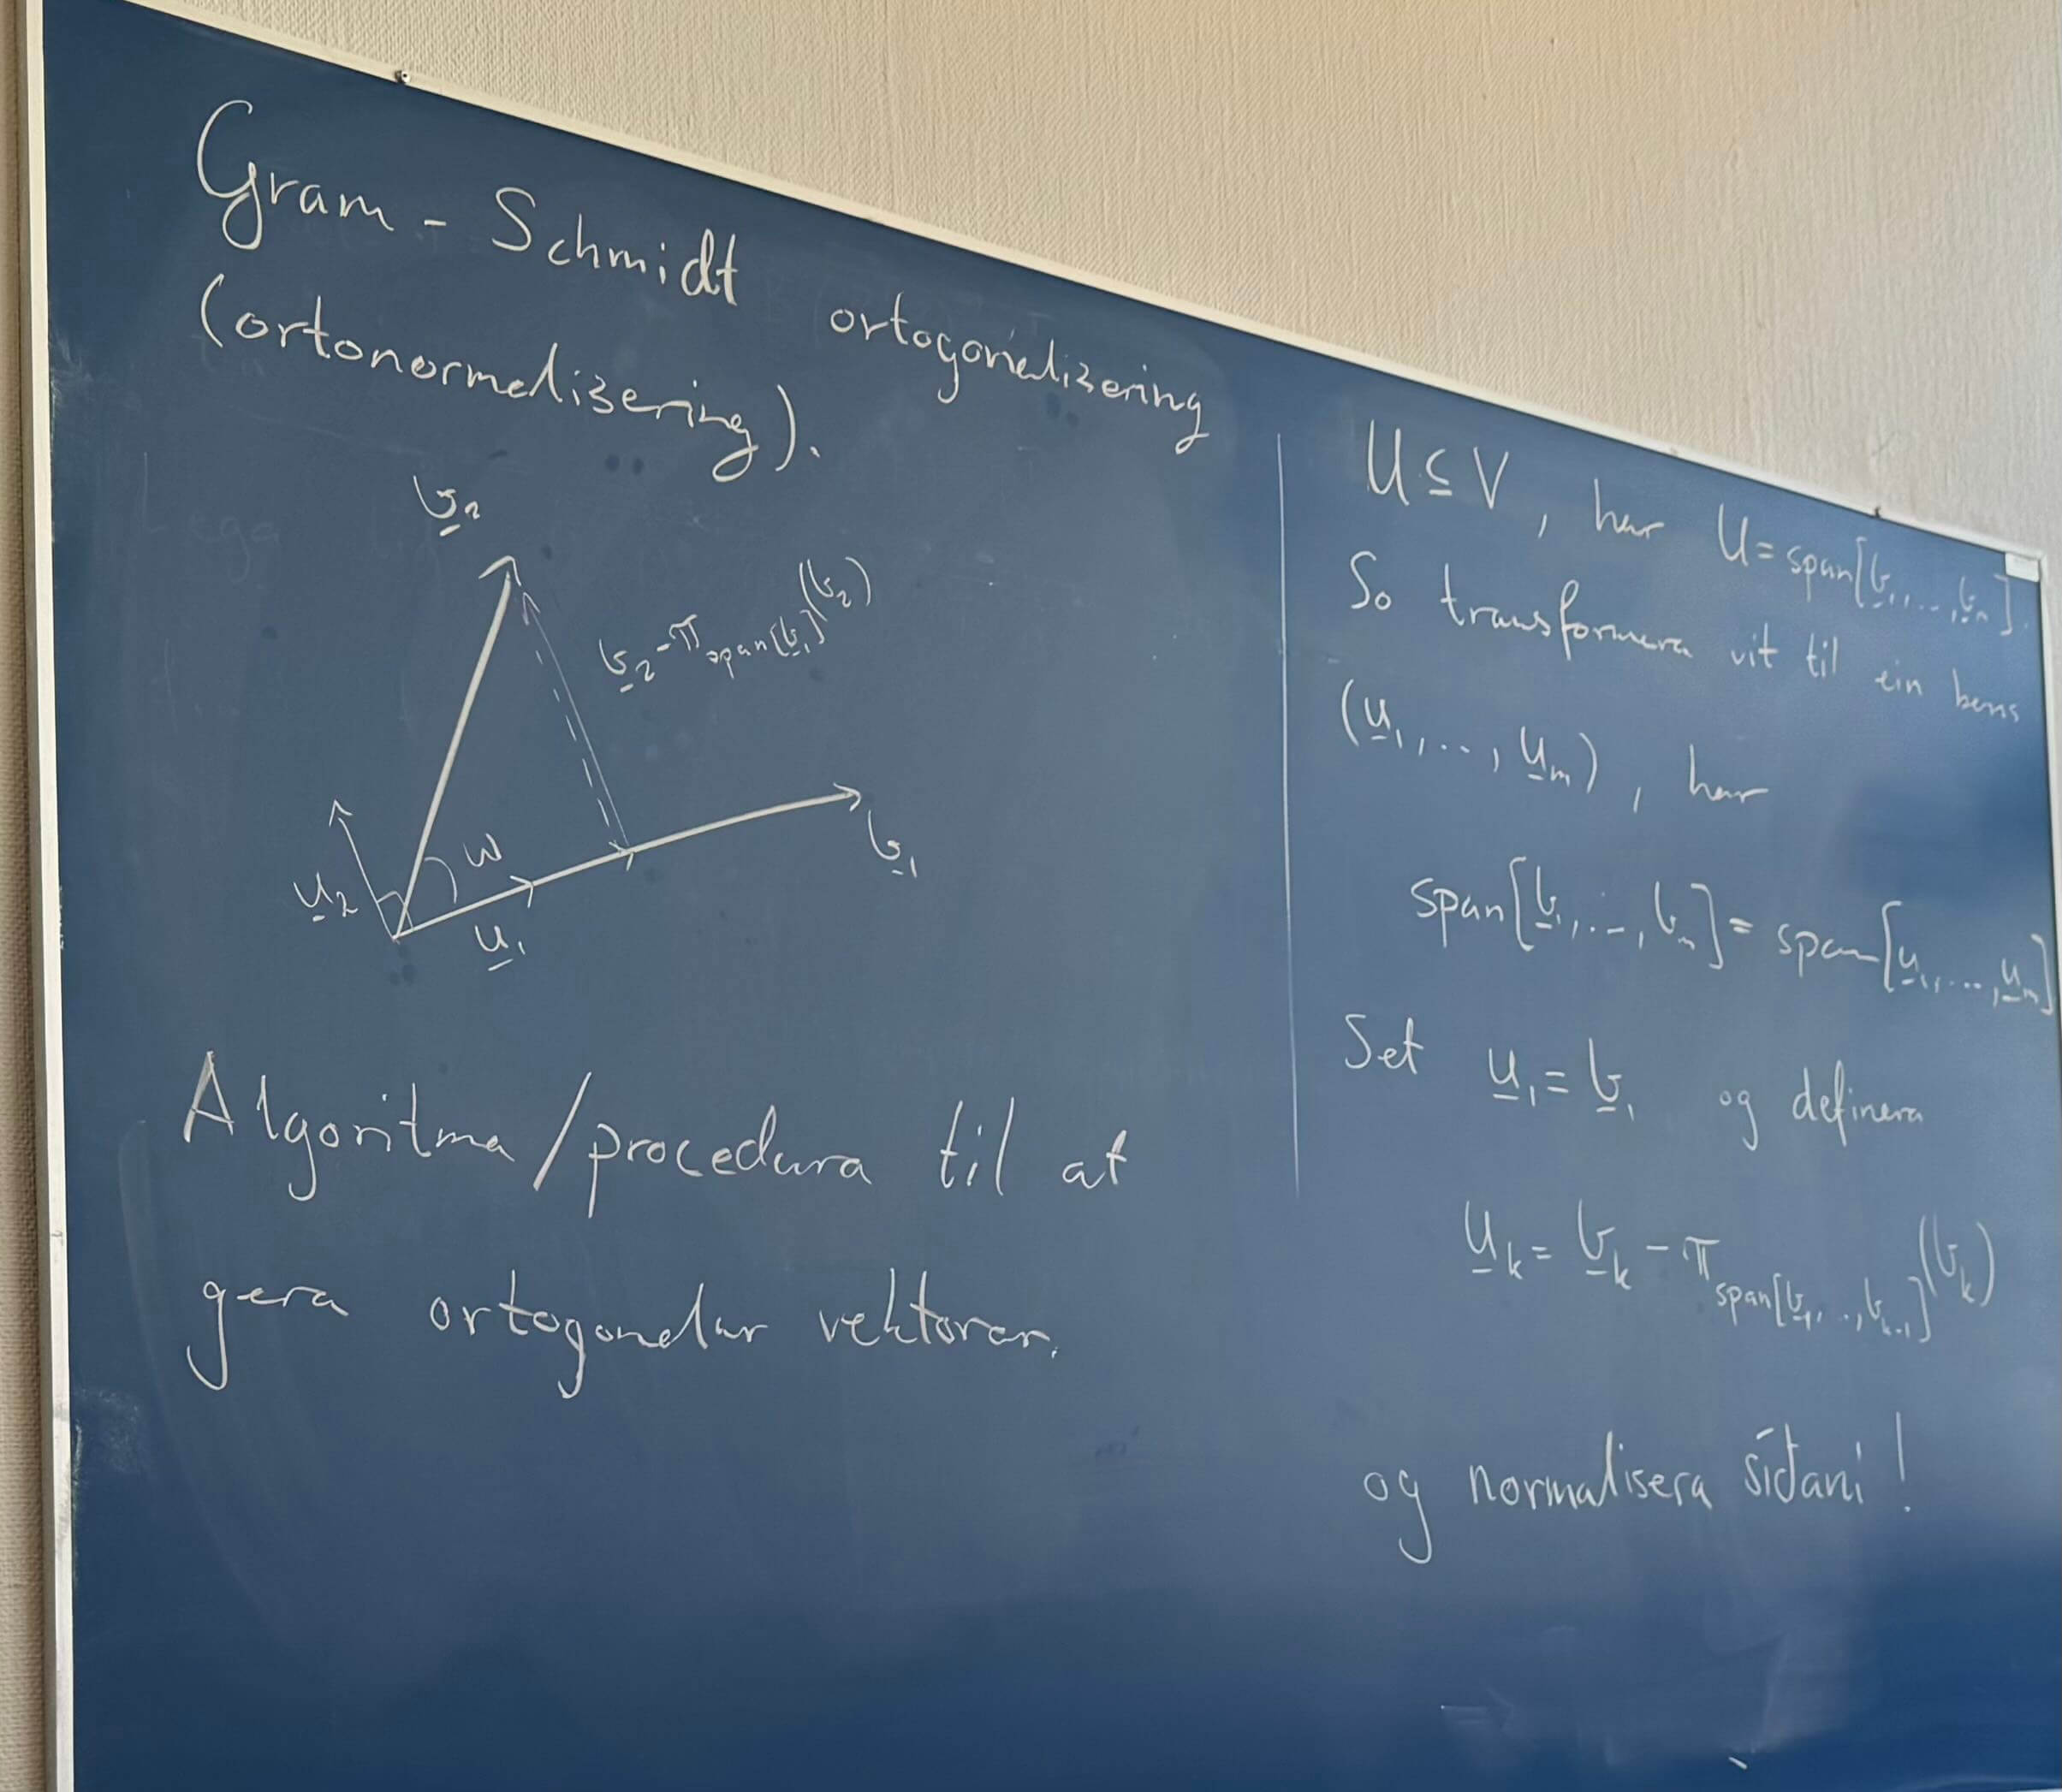 Gram-Schmidt ortogonalizering
(ortonormalizering).
b₂
b₂ - π_span[b₁](b₂)
ω
b₁
u₂
u₁
Algoritma/procedura til at
gera ortogonalar vektorar.
U ⊆ V, har U = span[b₁,...,bₙ].
So transformera vit til ein basis
(u₁,..,uₘ), har
span[b₁,...,bₙ] = span[u₁,...,uₘ]
Set u₁ = b₁ og definera
uₖ = bₖ - π_span[b₁,..,bₖ₋₁](bₖ)
og normalisera síðani!